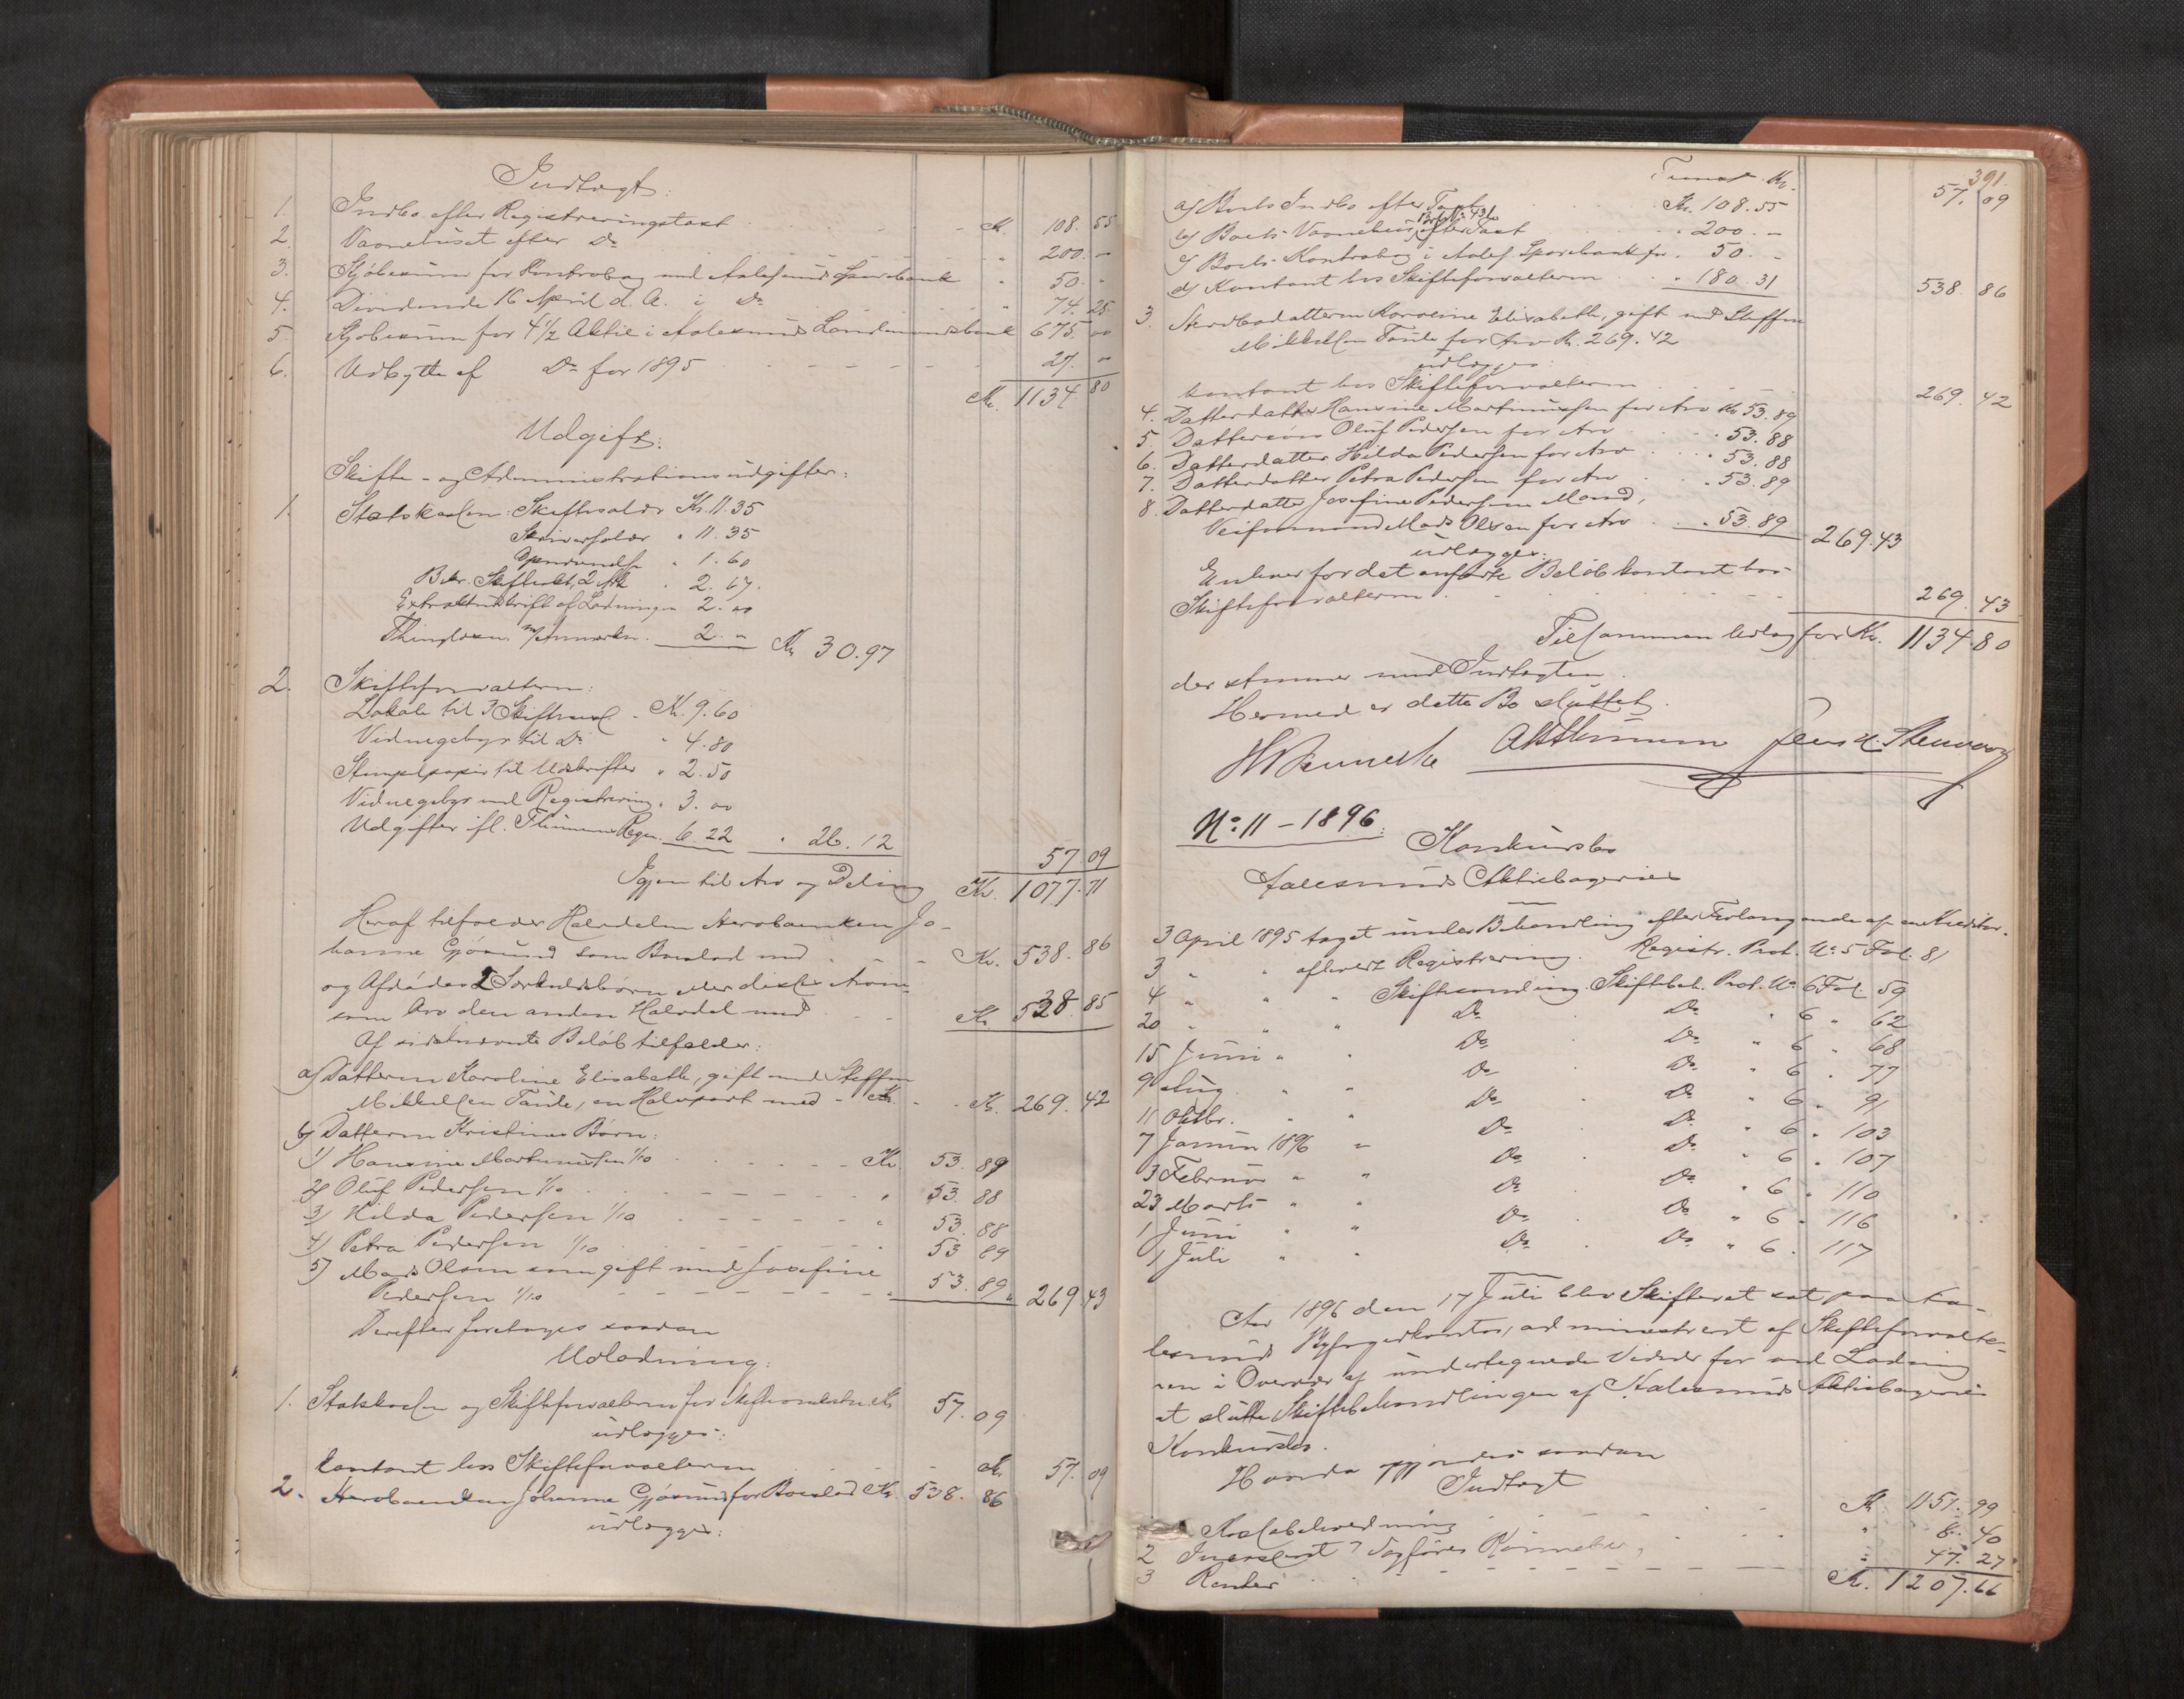 Indtægt:
1. Indbo efter Registreringstaxt Kr. 108.55
2. Vaanehuset efter Do " 200. "
3. Kjøbesum for Kontrabog med Aalesunds Sparebank " 50. "
4. Dividende 16 April d. A. i Do " 74.25
5. Kjøbesum for 4 1/2 Aktie i Aalesunds Landmandsbank 675.00
6. Udbytte af Do for 1895 27. "
Kr. 1134.80
Udgift:
Skifte- og Administrationsudgifter:
1. Statskassen: Skiftesalær Kr. 11.35
Skriversalær " 11.35
1.60
Bekr. 2 " 2.67.
Extraktudskrift af Lodningen 2.00
Thinglæsn. m/Anmærkn. 2. " Kr. 30.97
2. Skifteforvalteren:
Lokale til 3 Skiftesaml. Kr. 9.60
Vidnegebyr til Do " 4.80
Stempelpapir til Udskrifter " 2.50
Vidnegebyr ved Registrering " 3.00
Udgifter ifl. Regn. 6.22 " 26.12
57.09
Igjen til Arv og Deling Kr. 1077.71
Heraf tilfalder Halvdelen Arvebænken Jo-
hanne Gjøsund som Boeslod med Kr. 538.86
og Afdødes 2 Særkuldsbørn eller disses
som Arv den anden Halvdel med Kr. 538.85
Af sidstnævnte Beløb tilfalder:
a) Datteren Karoline Elisabeth, gift med Steffen
Mikkelsen Tande, en Halvpart med Kr. 269.42
b) Datteren Kristines Børn:
1) Hansine Martinussen 1/10 Kr. 53.89
2) Oluf Pedersen 1/10 " 53.88
3) Hilda Pedersen 1/10 " 53.88
4) Petra Pedersen 1/10 " 53.89
5) Mads Olsen som gift med Josefine
Pedersen 1/10 " 53.89 " 269.43
Derefter foretages saadan
Udlodning:
1. Statskassen og Skifteforvalteren for Kr. 57.09
udlægges:
kontant hos Skifteforvalteren Kr. 57.09
2. Johanne Gjøsund for Boeslod Kr. 538.86
udlægges:
391.
Transp. Kr. 57.09
a) Boets Indbo efter Taxt Kr. 108.55
b) Boets Vaanehus efter Taxt " 200. "
c) Boets Kontrabog i Aales. Sparebank for " 50. "
d) Kontant hos Skifteforvalteren " 180.31 538.86
3. Karoline Elisabeth, gift med Steffen
Mikkelsen Tande for Arv Kr. 269.42
udlægges:
kontant hos Skifteforvalteren 269.42
4. Datterdatter Hansine Martinussen for Arv Kr. 53.89
5. Dattersøn Oluf Pedersen for Arv " 53.88
6. Datterdatter Hilda Pedersen for Arv " 53.88
7. Datterdatter Petra Pedersen for Arv " 53.89
8. Datterdatter Josefine Pedersens Mand,
Veiformand Mads Olsen for Arv " 53.89 269.43
udlægges:
Enhver for det anførte Beløb kontant hos
Skifteforvalteren 269.43
Tilsammen Udlæg for Kr. 1134.80
der stemmer med Indtægten.
Hermed er dette Bo sluttet.
No. 11 – 1896.
Konkursbo
Aalesunds Aktiebageries
3 April 1895 taget under Behandling efter Forlangende af en Kreditor.
3 " " afholdt Registrering. Registr. Prot. No. 5 Fol. 81
4 " " " Skiftesamling. Skiftebeh. Prot. No. 6 Fol. 59
20 " " " Do Do " 6 " 62
15 Juni " " Do Do " 6 " 68
9 Aug. " " Do Do " 6 " 77
11 Oktbr. " " Do Do " 6 " 91
7 Januar 1896 " Do Do " 6 " 103
3 Februar " " Do Do " 6 " 107
23 Marts " " Do Do " 6 " 110
1 Juni " " Do Do " 6 " 116
1 Juli " " Do Do " 6 " 117
Aar 1896 den 17 Juli blev Skifteret sat paa Aa-
lesunds Byfogedkontor, administreret af Skifteforvalte-
ren i Overvær af undertegnede Vidner for ved Lodning
at slutte Skiftebehandlingen af Aalesunds Aktiebageries
Konkursbo.
Hvorda gjordes saadan
Indtægt
Kassebeholdning Kr. 1151.99
2 Sagfører " 8.40
3 Renter " 47.27
Kr. 1207.66